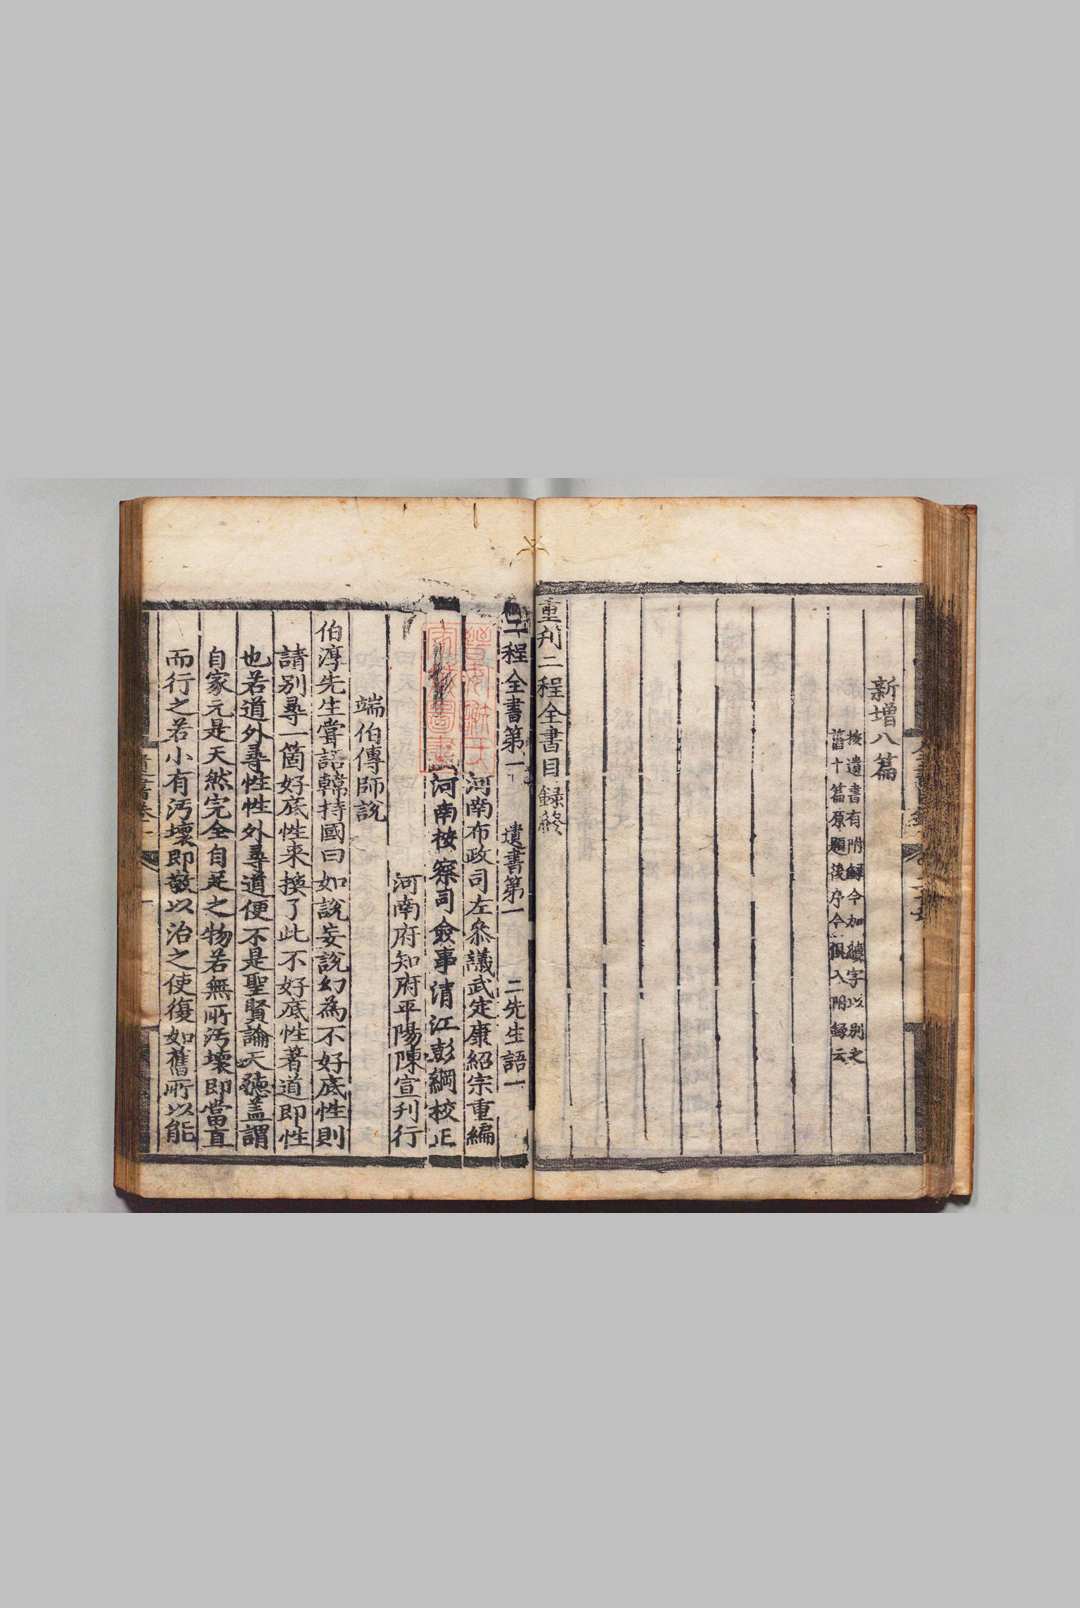 新增八篇
按遺書有附録今加續字以別之
舊十篇原題後序今俱入附録云
重刋二程全書目録終
二程全書第一 遺書第一 二先生語一
河南布政司左叅議武定康紹宗重編
河南按察司僉事清江彭綱校正
河南府知府平陽陳宣刋行
端伯傳師說
伯淳先生甞語韓持國曰如說妄說幻為不好底性則
請別尋一箇好底性來換了此不好底性著道即性
也若道外尋性性外尋道便不是聖賢論天德盖謂
自家元是天然完全自足之物若無所汚壞即當直
而行之若小有汚壞即敬以治之使復如舊所以能
遺書卷一